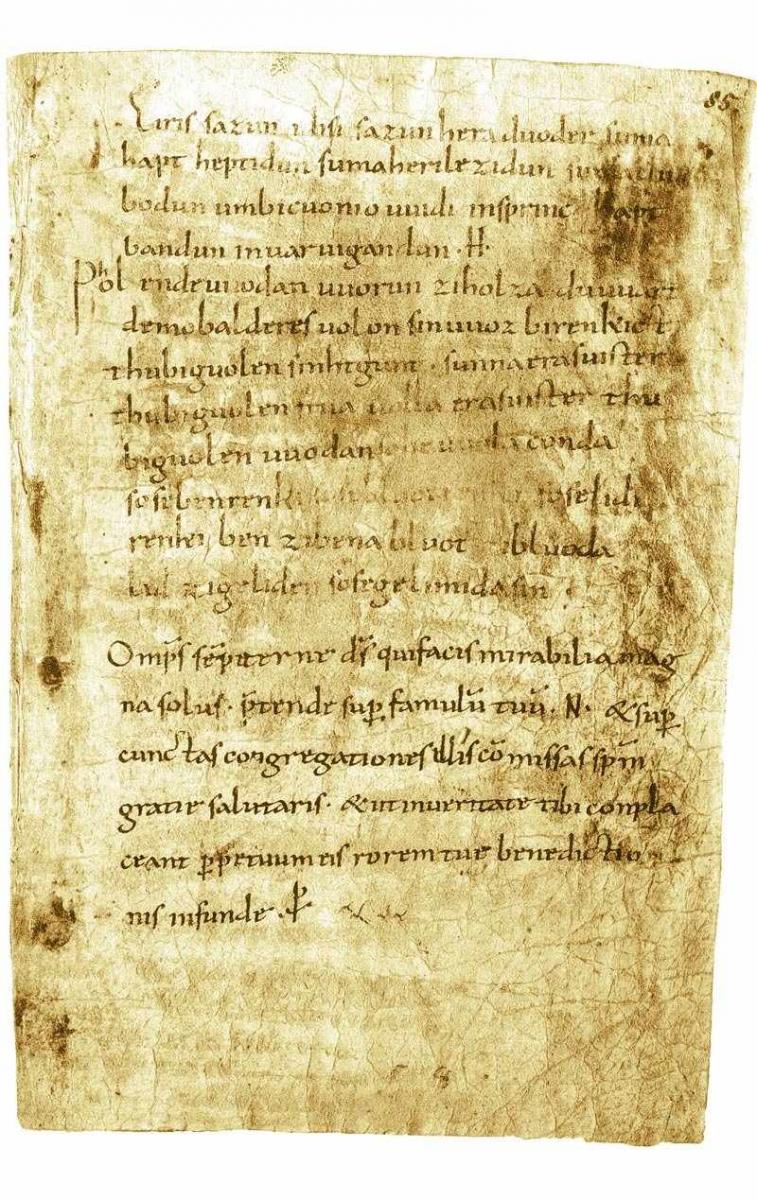 85
Eiris sazun idisi sazun hera duoder suma
hapt heptidun sumaherilezidun suma clubo
bodun umbicuoniouuidi insprinc hapt
bandun inuaruigandun · H ·
Phol endeuuodan uuorun ziholza du uuart
demobalderes uolon sinuuoz birenkict
thubiguolen sinhtgunt · sunnaerasuister
thubiguolen friia uolla erasuister thu
biguolen uuodan sohe uuola conda
sosebenrenki sose bluotrenki soselidi
renki ben zibena bluot zibluoda
lid zigeliden sosegelimidasin
Omps sēpiterne ds quifacis mirabilia mag
na solus · ptende sup famulū tuū · N · & sup
cunctas congregationes illis cōmissas spm
gratie salutaris · & ut inueritate tibi conpla
ceant ppetuum eis rorem tue benedictio
nis infunde · p